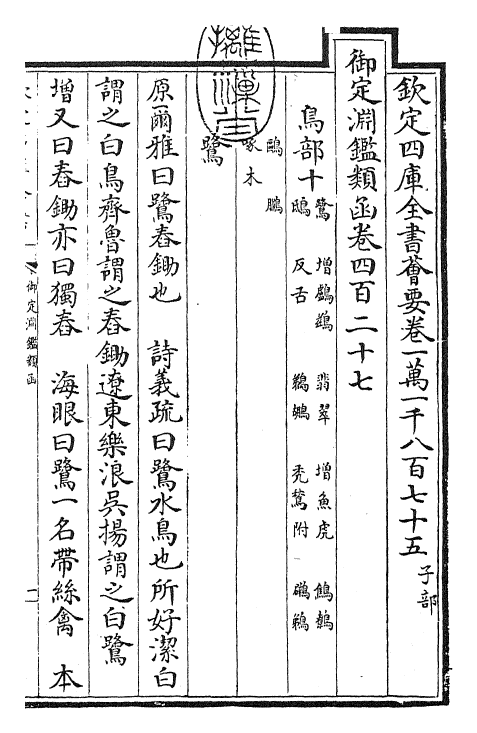 欽定四庫全書薈要卷一萬一千八百七十五 子部
御定淵鑑類函卷四百二十七
鳥部十 鷺 增鸕鷀 翡翠 增魚虎 鶬鴰
鴟 反舌 鵜鶘 禿鶖附
鴟 鵬
啄木
鷺
原爾雅曰鷺舂鋤也 詩義疏曰鷺水鳥也所好潔白
謂之白鳥齊魯謂之舂鋤遼東樂浪吳揚謂之白鷺
增又曰舂鋤亦曰獨舂 海眼曰鷺一名帶絲禽 本
御定淵鑑類函